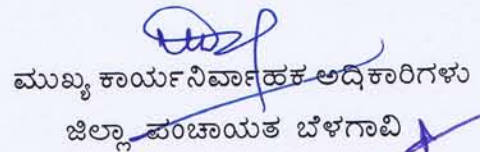 ಮುಖ್ಯ ಕಾರ್ಯನಿರ್ವಾಹಕ ಅಧಿಕಾರಿಗಳು
ಜಿಲ್ಲಾ ಪಂಚಾಯತ ಬೆಳಗಾವಿ